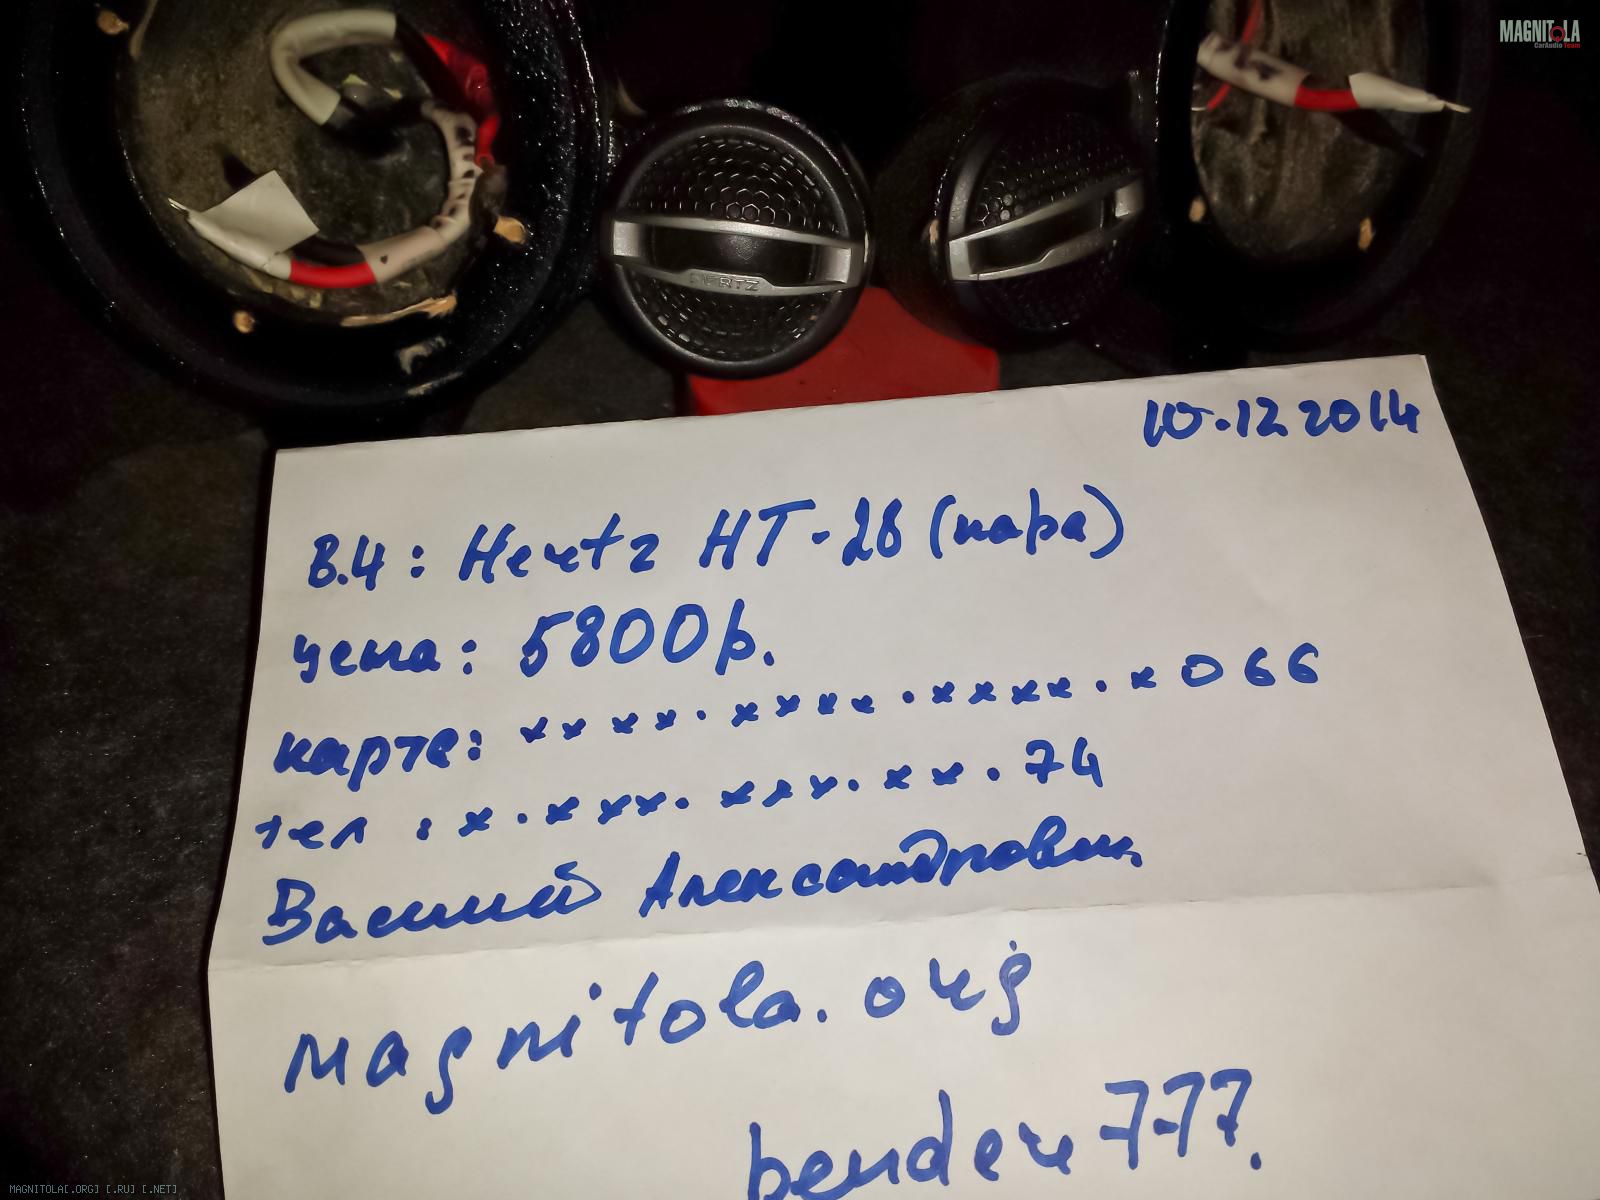 MAGNITOLA
CarAudio Team
HERTZ
10.12 2014
В.Ч: Hertz HT-28 (пара)
цена: 5800р.
карта: xxxx.xxxx.xxxx.x066
тел : x.xxxx.xxx.xx.74
Василий Александрович
magnitola.org
bender777.
MAGNITOLA[.ORG] [.RU] [.NET]